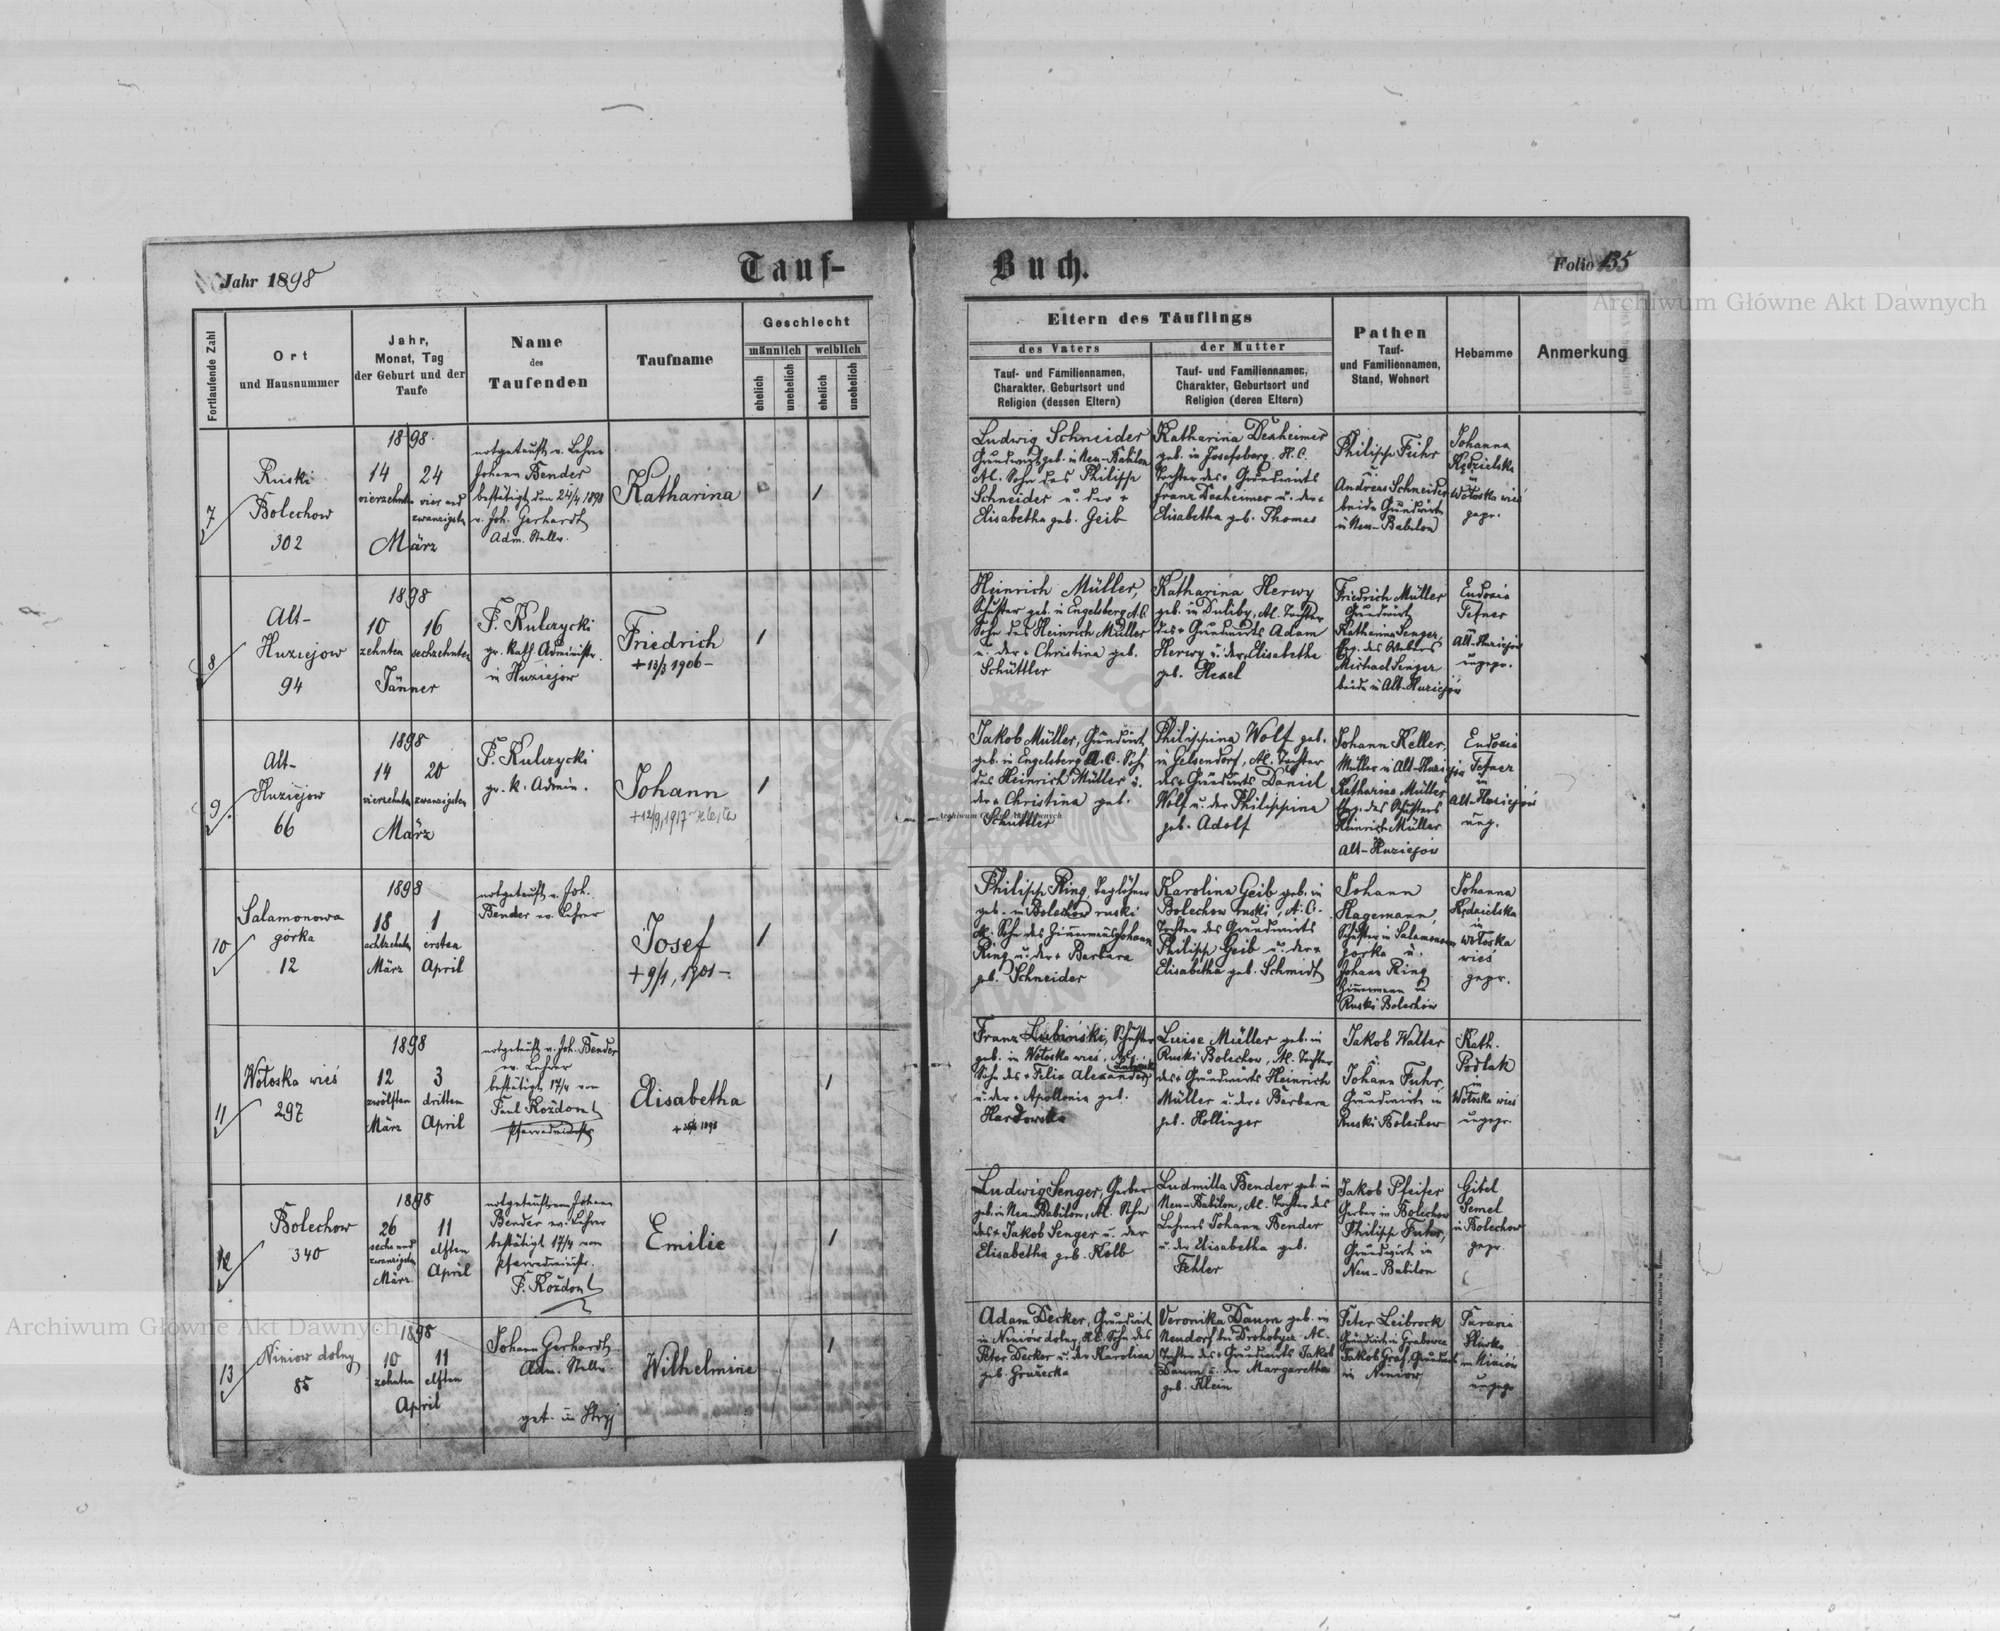 Jahr 1898
Tauf-
Buch.
Folio 135
Fortlaufende Zahl
Ort
und Hausnummer
Jahr,
Monat, Tag
der Geburt und der
Taufe
Name
des
Taufenden
Taufname
Geschlecht
männlich
weiblich
ehelich
unehelich
ehelich
unehelich
Eltern des Täuflings
des Vaters
der Mutter
Tauf- und Familiennamen,
Charakter, Geburtsort und
Religion (dessen Eltern)
Tauf- und Familiennamen,
Charakter, Geburtsort und
Religion (deren Eltern)
Pathen
Tauf-
und Familiennamen,
Stand, Wohnort
Hebamme
Anmerkung
7
Ruski
Bolechow
302
1898.
14 24
vierzehnten vier und
zwanzigsten
März
notgetauft v. Lehrer
Johann Bender
bestätigt den 24/4 1898
v. Joh. Gerhardt
Adm. Stellv.
Katharina
1
Ludwig Schneider
Grundwirt geb. in Neu-Babilon
AC. Sohn des Philipp
Schneider u. der +
Elisabetha geb. Geib
Katharina Dexheimer
geb. in Josefsberg. H. C.
Tochter des + Grundwirts
Franz Dexheimer u. der +
Elisabetha geb. Thomas
Philipp Fuhr
u.
Andreas Schneider
beide Grundwirte
in Neu-Babilon
Johanna
Kędzielska
in
Wołoska wieś
gepr.
8
Alt-
Huziejow
94
1898
10 16
zehnten sechzehnten
Jänner
F. Kulczycki
gr. kath. Administr.
in Huziejow
Friedrich
+ 13/3 1906 -
1
Heinrich Müller,
Schuster geb. in Engelsberg A.C.
Sohn des Heinrich Müller
u. der + Christina geb.
Schüttler
Katharina Herwy
geb. in Duliby, AC. Tochter
des + Grundwirts Adam
Herwy u. der + Elisabetha
geb. Hexel
Friedrich Müller
Grundwirt
Katharina Senger,
Michael Senger
beide in Alt-Huziejów
Eudoxia
Fefner
in
Alt-Huziejów
ungepr.
9
Alt-
Huziejow
66
1898
14 20
vierzehnten zwanzigsten
März
F. Kulczycki
gr. k. Admin.
Johann
+ 12/9, 1917
1
Jakob Müller, Grundwirt
geb. in Engelsberg A.C. Sohn
des Heinrich Müller u.
der + Christina geb.
Schüttler
Philippina Wolf geb.
in Gelsendorf, AC. Tochter
des + Grundwirts Daniel
Wolf u. der Philippina
geb. Adolf
Johann Keller,
Müller in Alt-Huziejów
Katharina Müller
des Schusters
Heinrich Müller
Alt-Huziejow
Eudoxia
Fefner
in
Alt-Huziejów
ung.
10
Salamonowa
górka
12
1898
18 1
achtzehnten ersten
März April
notgetauft v. Joh.
Bender ev. Lehrer
Josef
+ 9/1, 1901 -
1
Philipp Ring, Taglöhner
geb. in Bolechow ruski
AC. Sohn des Zimmermanns Johann
Ring u. der + Barbara
geb. Schneider
Karolina Geib geb. in
Bolechow ruski, A.C.
Tochter des Grundwirts
Philipp Geib u. der +
Elisabetha geb. Schmidt
Johann
Hagemann,
Schuster in Salamonowa
górka u.
Johann Ring
Zimmermann in
Ruski Bolechów
Johanna
Kędzielska
in
Wołoska
wieś
gepr.
11
Wołoska wieś
297
1898
12 3
zwölften dritten
März April
notgetauft v. Joh. Bender
ev. Lehrer
bestätigt 17/4 von
Paul Kożdoń
Pfarradministr.
Elisabetha
1898
1
Franz Lubiński, Schuster
geb. in Wołoska wieś, AC.
Sohn des + Felix Alexander
Lubiński
u. der + Apollonia geb.
Luise Müller geb. in
Ruski Bolechow, AC. Tochter
des + Grundwirts Heinrich
Müller u. der + Barbara
geb. Hollinger
Jakob Walter
u.
Johann Fuhr,
Grundwirte in
Ruski Bolechow
Kath.
Podlak
in
Wołoska wieś
ungepr.
12
Bolechow
340
1898
26 11
sechs und elften
zwanzigsten
März April
notgetauft von Johann
Bender ev. Lehrer
bestätigt 17/4 vom
Pfarradministr.
P. Kożdoń
Emilie
1
Ludwig Senger, Gerber
geb. in Neu-Babilon, AC. Sohn
des + Jakob Senger u. der
Elisabetha geb. Kolb
Ludmilla Bender geb. in
Neu-Babilon, AC. Tochter des
Lehrers Johann Bender
u. der Elisabetha geb.
Fehler
Jakob Pfeifer
Gerber in Bolechow
Philipp Fuhr,
Grundwirt in
Neu-Babilon
Gitel
Semel
in Bolechow
gepr.
13
Niniow dolny
85
1898
10 11
zehnten elften
April
Johann Gerhardt
Adm. Stellv.
get. in Stryj
Wilhelmine
1
Adam Decker, Grundwirt
in Niniów dolny, AC. Sohn des
Peter Decker u. der Karolina
geb. Gruzecka
Veronika Daum geb. in
Neudorf bei Drohobycz AC.
Tochter des + Grundwirts Jakob
Daum u. der Margaretha
geb. Klein
Peter Leibrock
Grundwirt in Grabowce
Jakob Graf, Grundwirt
in Niniow
Parania
in Niniów
ungepr.
Archiwum Główne Akt Dawnych
Archiwum Główne Akt Dawnych
Archiwum Główne Akt Dawnych